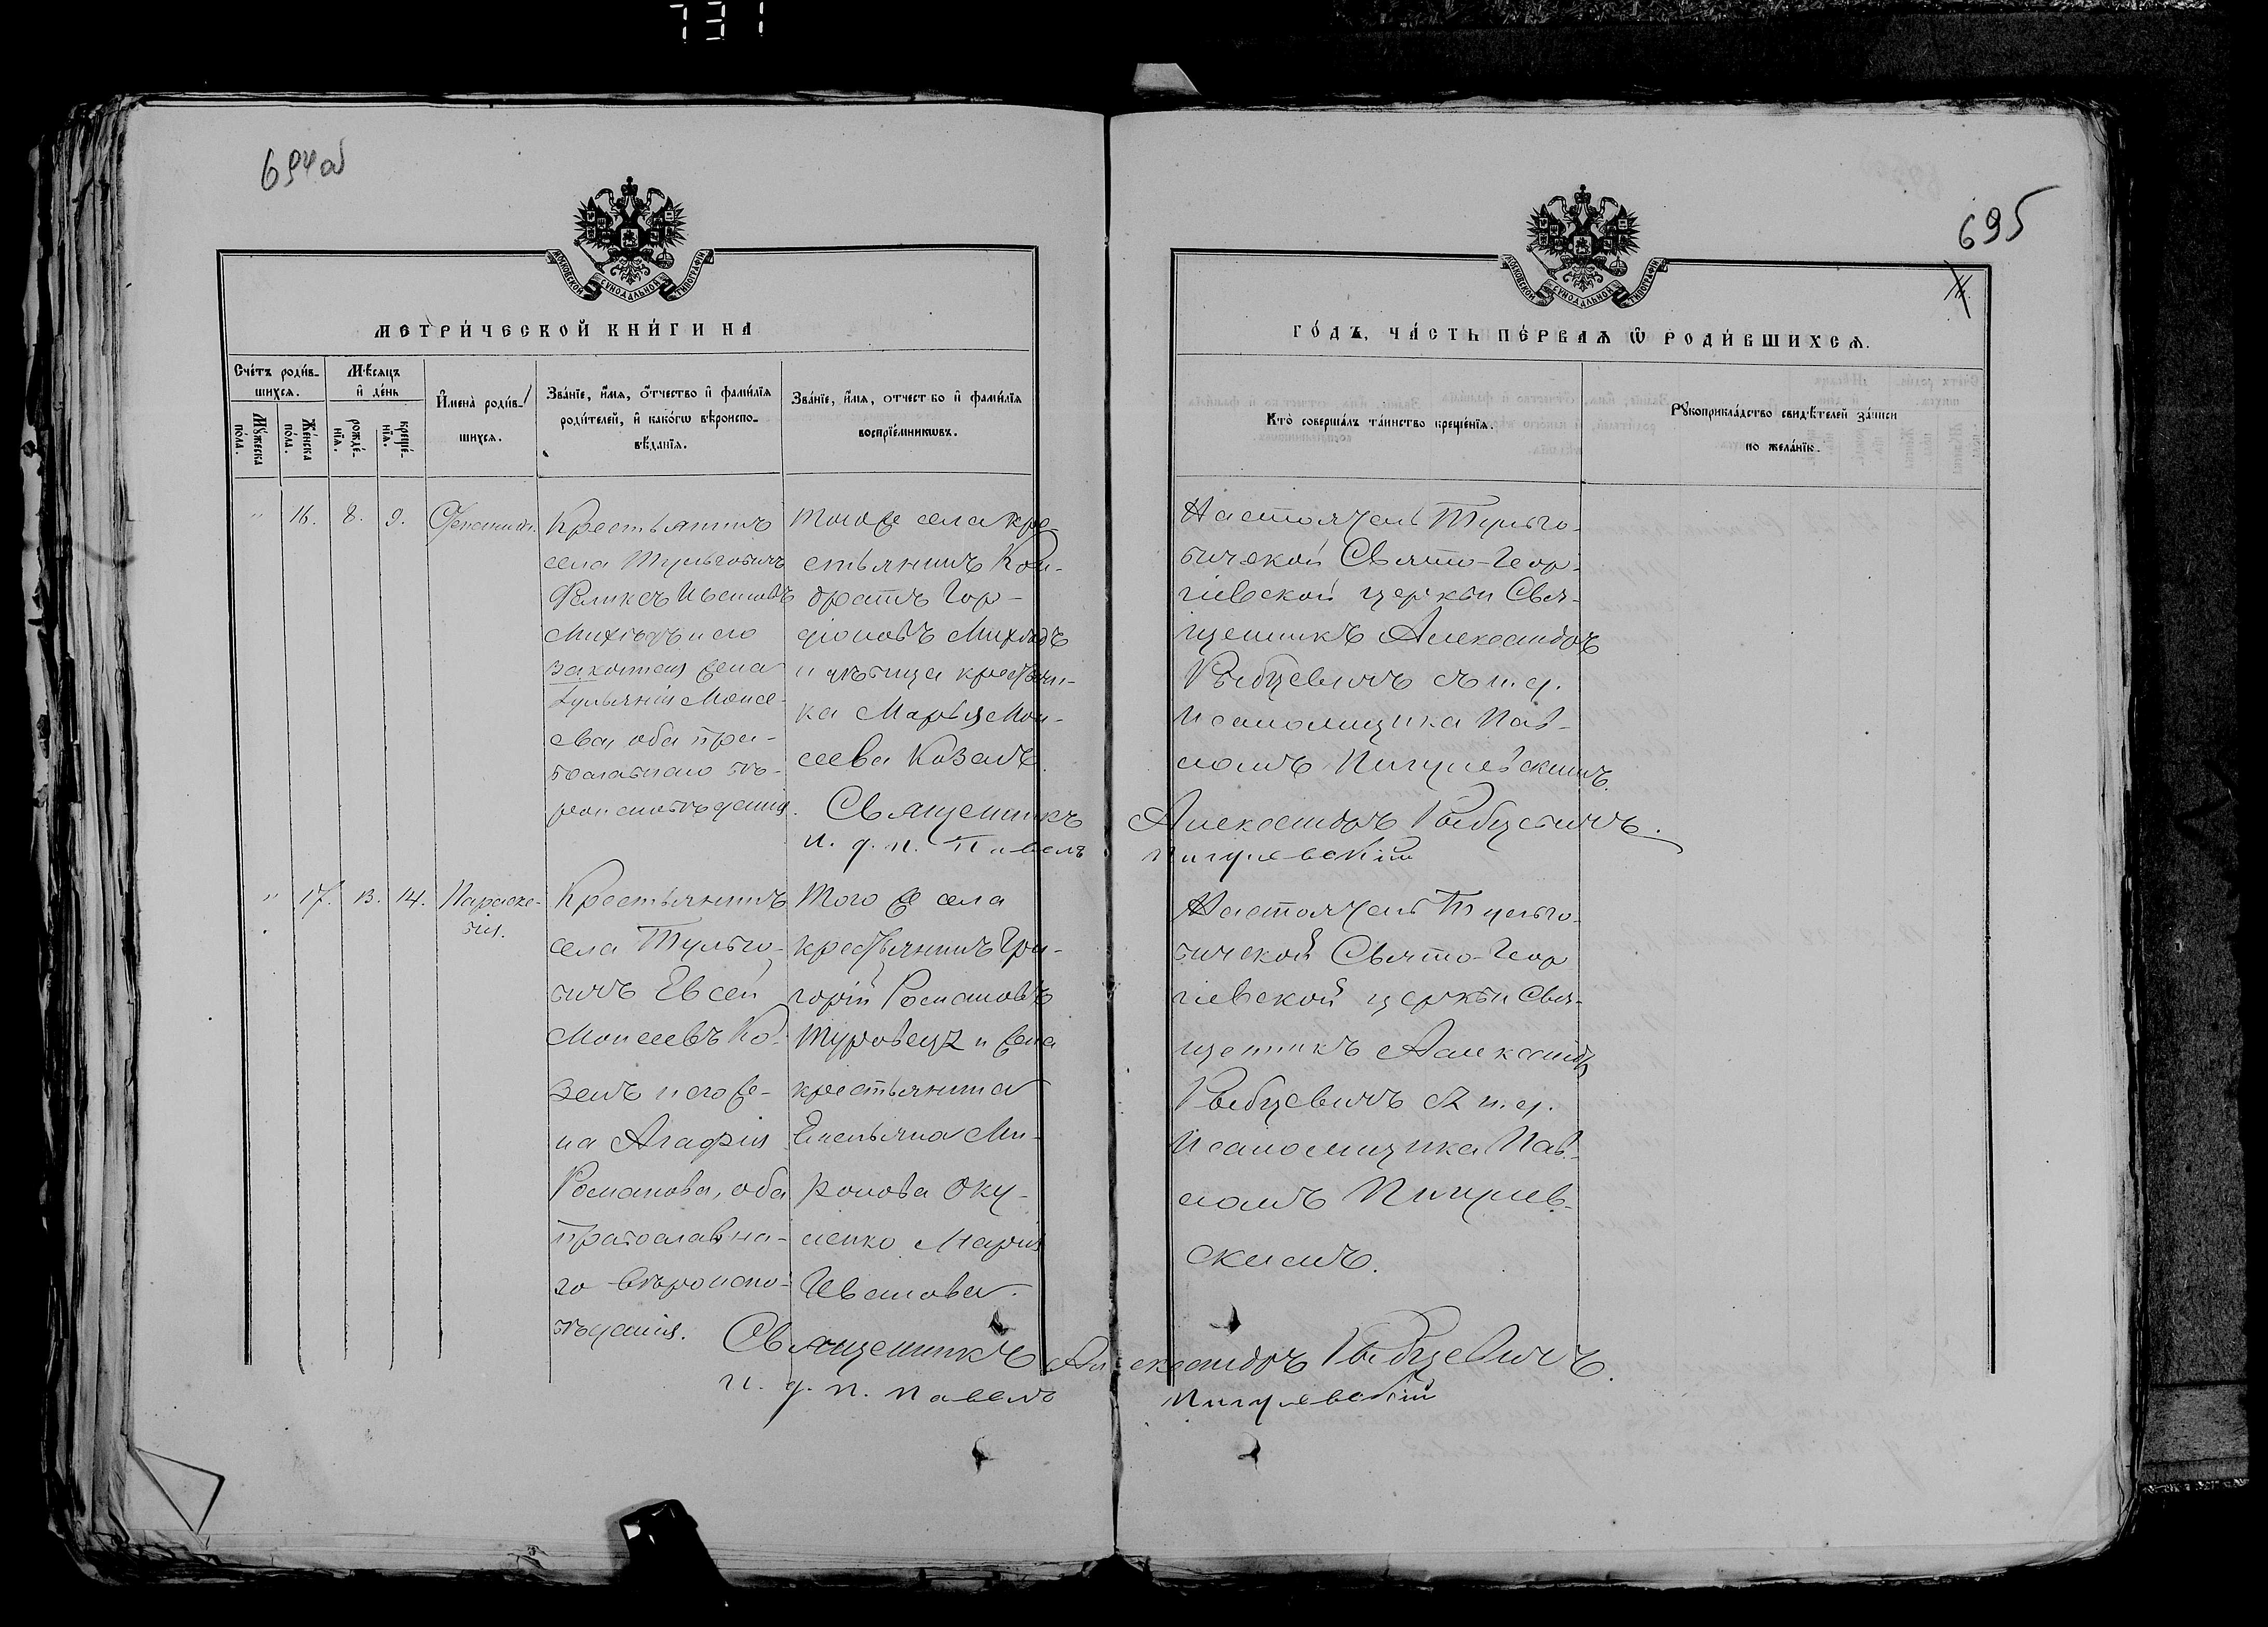 731
694об
695
МОСКОВСКОЙ СѴНОДАЛЬНОЙ ТИПОГРАФІИ
МЕТРИ́ЧЕСКОЙ КНИ́ГИ НА
Сче́тъ роди́в-
шихсѧ.
Мѣ́сѧцъ
и҆ де́нь
Мꙋ́жеска
по́ла.
Же́нска
по́ла.
рожде́-
нїѧ.
креще́-
нїѧ.
И҆мена̀ роди́в-
шихсѧ.
Зва́нїе, и҆́мѧ, ѻ҆́тчество и҆ фами́лїѧ
роди́телей, и҆ како́гѡ вѣроиспо-
вѣ́данїѧ.
Зва́нїе, и҆́мѧ, ѻ҆́тчество и҆ фами́лїѧ
воспрїе́мникѡвъ.
" 16. 8. 9.
Крестьянинъ
села Тульговичъ
Феликсъ Ивановъ
Михлидъ и его
законная жена
Ульянія Моисе-
ева, оба пра-
вославнаго вѣ-
роисповѣданія.
Того же села кре-
стьянинъ Кон-
дратъ Гор-
діоновъ Михлидъ
и дѣвица крестьян-
ка Марья Мои-
сеева Козелъ.
Священникъ
и. д. п. Павелъ
" 17. 13. 14. Параске-
вія.
Крестьянинъ
села Тульго-
вичъ Евсей
Моисеевъ Ко-
зелъ и его же-
на Агафія
Романова, оба
православна-
го вѣроиспо-
вѣданія.
Того же села
крестьянинъ Гри-
горій Романовъ
Туровецъ и жена
крестьянина
Емельяна Ми-
ронова Оку-
ленко Марія
Иванова.
Священникъ
и. д. п. Павелъ
МОСКОВСКОЙ СѴНОДАЛЬНОЙ ТИПОГРАФІИ
ГО́ДЪ, ЧА́СТЬ ПЕ́РВАѦ Ѡ҆ РОДИ́ВШИХСѦ.
Кто̀ соверша́лъ та́инство креще́нїѧ.
Рꙋкоприкла́дство свидѣ́телей за́писи
по жела́нїю.
Настоятель Тульго-
вичской Свято-Геор-
гіевской церкви Свя-
щенникъ Александръ
Рыбцевичъ съ и. д.
псаломщика Пав-
ломъ Пигулевскимъ.
Александръ Рыбцевичъ.
Пигулевскій
Настоятель Тульго-
вичской Свято-Геор
гіевской церкви Свя-
щенникъ Александръ
Рыбцевичъ съ и. д.
псаломщика Пав-
ломъ Пигулев-
скимъ.
Александръ Рыбцевичъ.
Пигулевскій